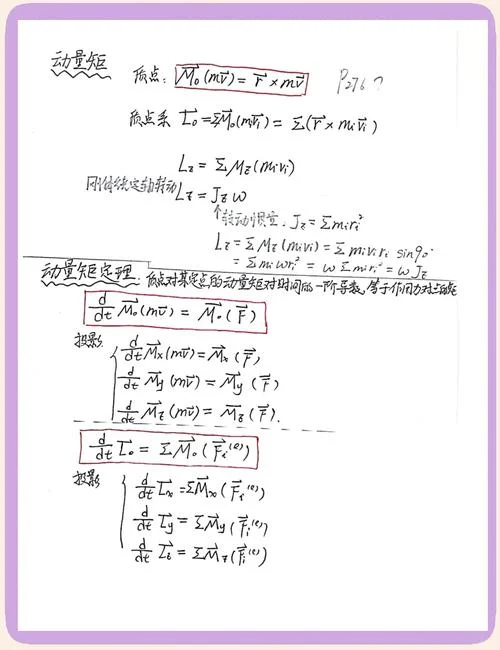 动量矩
质点: M⃗₀(mv⃗) = r⃗ × mv⃗ P276?
质点系 L⃗₀ = ΣM⃗₀(mᵢv⃗ᵢ) = Σ(r⃗ × mᵢv⃗ᵢ)
L_z = ΣM_z(mᵢvᵢ)
刚体绕定轴转动 L_z = J_z ω
↑转动惯量. J_z = Σmᵢrᵢ²
L_z = ΣM_z(mᵢvᵢ) = Σmᵢvᵢrᵢ sin90°
= Σmᵢωrᵢ² = ωΣmᵢrᵢ² = ωJ_z
动量矩定理. 质点对某定点的动量矩对时间的一阶导数, 等于作用力对
d/dt M⃗₀(mv⃗) = M⃗₀(F⃗)
投影
d/dt M⃗x(mv⃗) = M⃗x(F⃗)
d/dt M⃗y(mv⃗) = M⃗y(F⃗)
d/dt M⃗z(mv⃗) = M⃗z(F⃗).
d/dt L⃗₀ = ΣM⃗₀(F⃗ᵢ⁽ᵉ⁾)
投影
d/dt L⃗x = ΣM⃗x(F⃗ᵢ⁽ᵉ⁾)
d/dt L⃗y = ΣM⃗y(F⃗ᵢ⁽ᵉ⁾)
d/dt L⃗z = ΣM⃗z(F⃗ᵢ⁽ᵉ⁾)